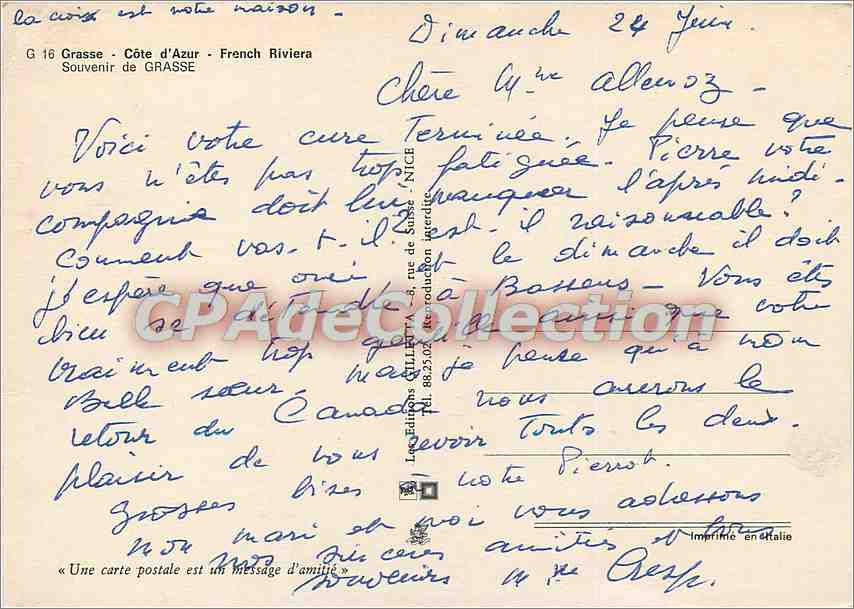 la croix est notre maison -
G 16 Grasse - Côte d'Azur - French Riviera
Souvenir de GRASSE
Dimanche 24 Juin.
Chère Mme Allemoz -
Voici votre cure terminée. Je pense que
vous n'êtes pas trop fatiguée. Pierre votre
compagnie doit lui manquer l'après midi.
Comment vas-t-il? est-il raisonnable?
j'espère que oui et le dimanche il doit
bien se détendre à Bassens - Vous êtes
vraiment trop gentille ainsi que votre
Belle sœur. mais je pense qu'à nom
retour du Canada nous aurons le
plaisir de vous revoir touts les deux.
grosses bises à notre Pierrot.
mon mari et moi vous adressons
nos sincères amitiés et bons
souvenirs Mme Cresp.
Les Editions GILLETTA - 6, rue de Suisse - NICE
Tél. 88.25.02 Reproduction interdite
CPAdeCollection
Imprimé en Italie
« Une carte postale est un message d'amitié »